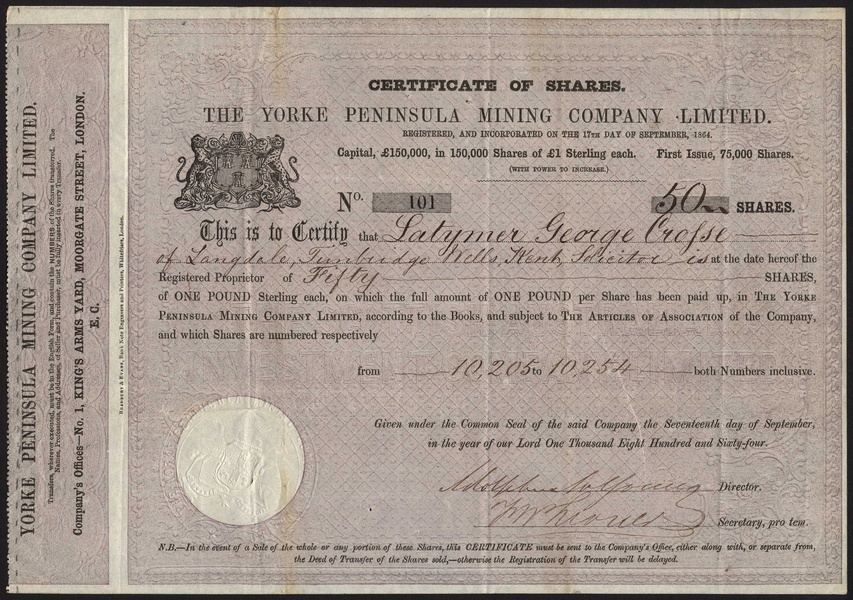 YORKE PENINSULA MINING COMPANY LIMITED.
Transfers, wherever executed, must be in the English Form, and contain the NUMBERS of the Shares transferred. The
Names, Professions, and Addresses, of Seller and Purchaser, must be fully inserted in every Transfer.
Company's Offices—No. 1, KING'S ARMS YARD, MOORGATE STREET, LONDON.
E.C.
Bradbury & Evans, Bank Note Engravers and Printers, Whitefriars, London.
CERTIFICATE OF SHARES.
THE YORKE PENINSULA MINING COMPANY LIMITED.
REGISTERED, AND INCORPORATED ON THE 17TH DAY OF SEPTEMBER, 1864.
Capital, £150,000, in 150,000 Shares of £1 Sterling each. First Issue, 75,000 Shares.
(WITH POWER TO INCREASE.)
No. 101 50 SHARES.
This is to Certify that Latymer George Crosse
of Langdale, Tunbridge Wells, Kent, Solicitor is at the date hereof the
Registered Proprietor of Fifty SHARES,
of ONE POUND Sterling each, on which the full amount of ONE POUND per Share has been paid up, in THE YORKE
PENINSULA MINING COMPANY LIMITED, according to the Books, and subject to THE ARTICLES OF ASSOCIATION of the Company,
and which Shares are numbered respectively
from 10,205 to 10,254 both Numbers inclusive.
Given under the Common Seal of the said Company the Seventeenth day of September,
in the year of our Lord One Thousand Eight Hundred and Sixty-four.
Adolphus Young Director.
Secretary, pro tem.
N.B.—In the event of a Sale of the whole or any portion of these Shares, this CERTIFICATE must be sent to the Company's Office, either along with, or separate from,
the Deed of Transfer of the Shares sold,—otherwise the Registration of the Transfer will be delayed.